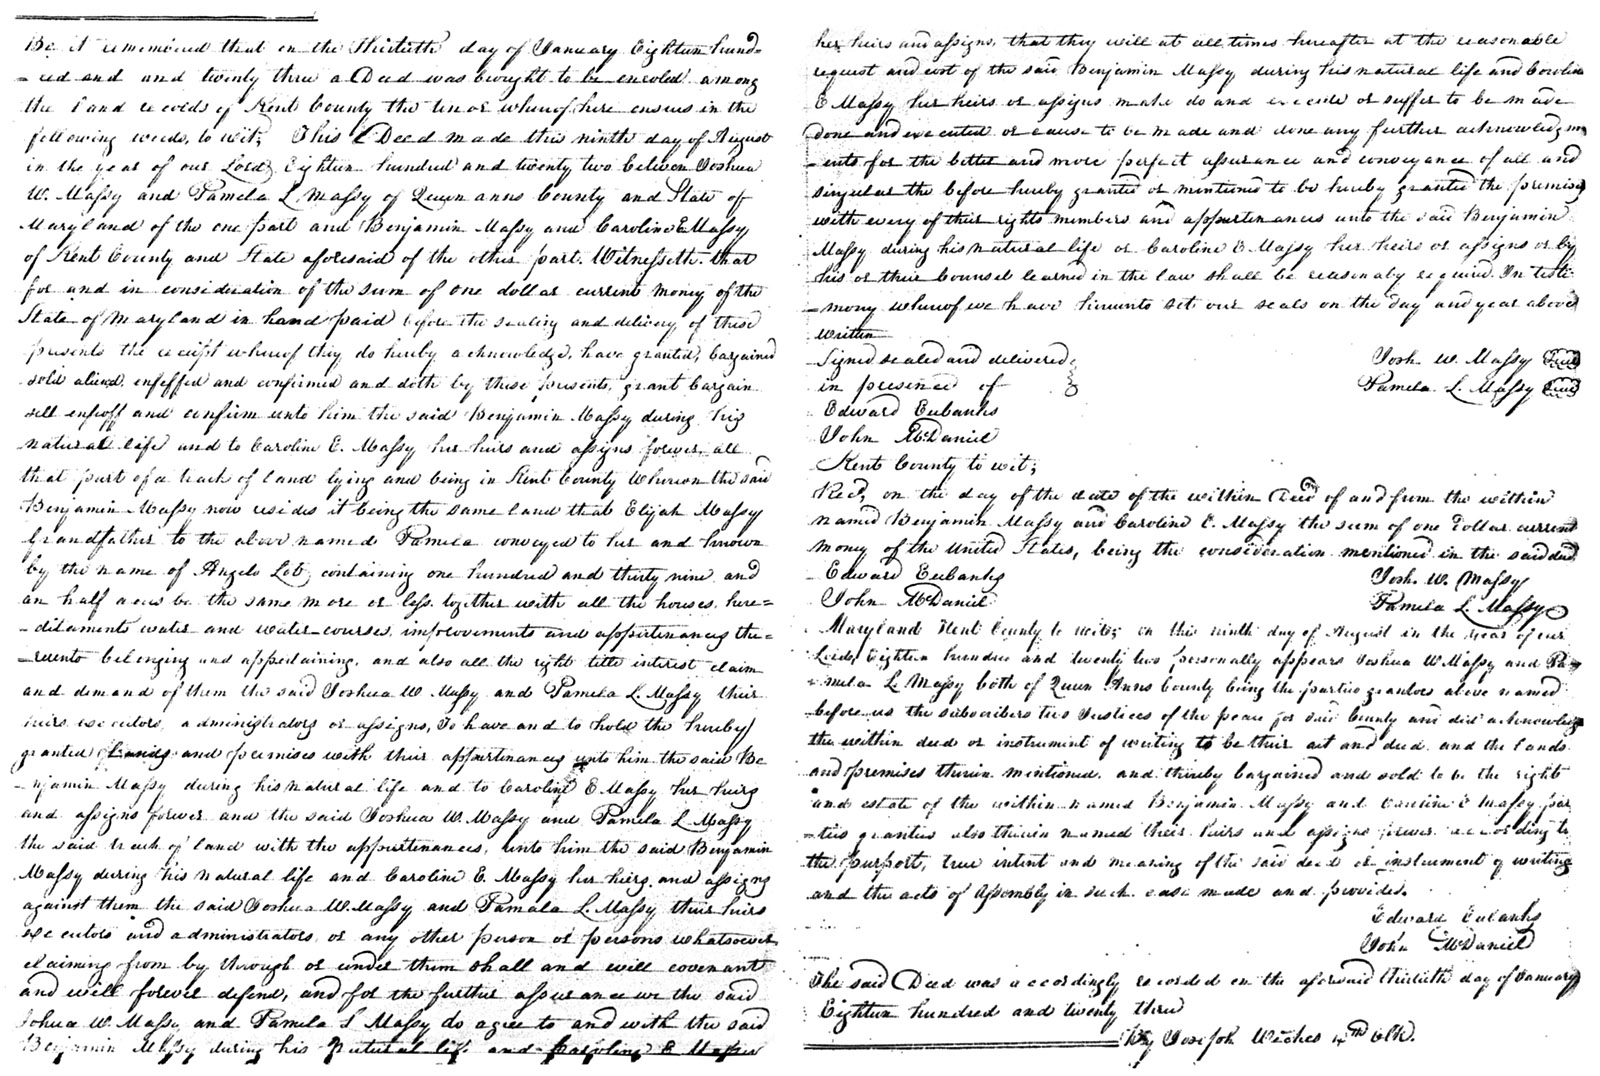 Be it remembered that on the Thirtieth day of January Eighteen hund=
=red and and twenty three a Deed was brought to be enroled among
the Land records of Kent County the tenor whereof here ensues in the
following words, to wit; This Deed made this ninth day of August
in the year of our Lord, Eighteen hundred and twenty two between Joshua
W. Massy and Pamela L Massy of Queen anns County and State of
Maryland of the one part and Benjamin Massy and Caroline E Massy
of Kent County and State aforesaid of the other part. Witnesseth. that
for and in consideration of the sum of one dollar current money of the
State of Maryland in hand paid before the sealing and delivery of these
presents the receipt whereof they do hereby acknowledge, have granted, bargained
sold aliend, enfeffed and confirmed and doth by these presents, grant bargain
sell enfeoff and confirm unto him the said Benjamin Massy during his
natural life and to Caroline E. Massy her heirs and assigns forever. all
that part of a track of land lying and being in Kent County Whereon the said
Benjamin Massy now resides it being the same land that Elijah Massy
Grandfather to the above named Pamela conveyed to her and known
by the name of Angels Lot, containing one hundred and thirty nine and
an half acres be the same more or less. together with all the houses, here=
=ditaments water and water-courses, improvements and appertinances the=
=reunto belonging and appertaining, and also all the right title interest claim
and demand of them the said Joshua W Massy and Pamela L. Massy their
heirs executors, administrators or assigns, To have and to hold the hereby
granted Lands and premises with their appurtinances unto him the said Be
=njamin Massy during his natural life and to Caroline E Massy her heirs
and assigns forever and the said Joshua W. Massy and Pamela L Massy
the said track of land with the appurtinances, unto him the said Benjamin
Massy during his natural life and Caroline E. Massy her heirs, and assigns
against them the said Joshua W. Massy and Pamala L. Massy their heirs
executors and administrators or any other person or persons whatsoever
claiming from by through or under them shall and will covenant
and will forever defend, and for the further assurance we the said
Johua W. Massy and Pamela L Massy do agree to and with the said
Benjamin Massy during his natural life and Caroline E Massy
her heirs and assigns, that they will at all times hereafter at the reasonable
request and cost of the said Benjamin Massy during his natural life and Caroline
E Massy her heirs or assigns make do and execute or suffer to be made
done and executed or cause to be made and done any further acknowledgm
=ents for the better and more perfect assurance and conveyance of all and
singular the before hereby granted or mentioned to be hereby granted the premises
with every of their rights members and appertinances unto the said Benjamin
Massy during his natural life or Caroline E Massy her heirs or assigns or by
his or their Counsel learned in the law shall be reasonaly required. In testi
=mony whereof we have hereunto set our seals on the day and year above
written
Signed sealed and delivered Josh W. Massy Seal
in presence of Pamela L. Massy Seal
Edward Eubanks
John McDaniel
Kent County to wit;
Recd, on the day of the date of the within Deed of and from the within
named Benjamin Massy and Caroline E. Massy the sum of one Dollar current
money of the United States, being the consideration mentioned in the said deed
Edward Eubanks Josh. W. Massy
John McDaniel Pamela L. Massy
Maryland Kent County to wit; on this ninth day of August in the year of our
Lord, Eighteen hundred and twenty two personally appears Joshua W. Massy and Pa
=mela L. Massy both of Queen Anns County being the parties grantors above named
before us the subscribers two Justices of the peace for said County and did acknowledge
the within deed or instrument of writing to be their act and deed. and the lands
and premises therein mentioned. and thereby bargained and sold to be the right
and estate of the within named Benjamin Massy and Caroline E Massy par
=ties grantees also therein named their heirs and assigns forever. according to
the purport, true intent and meaning of the said deed or instrument of writing
and the acts of Assembly in such case made and provided.
Edward Eubanks
John McDaniel
The said Deed was accordingly recorded on the aforesaid Thirtieth day of January
Eighteen hundred and twenty three
By Joseph Wickes 4th Clk.